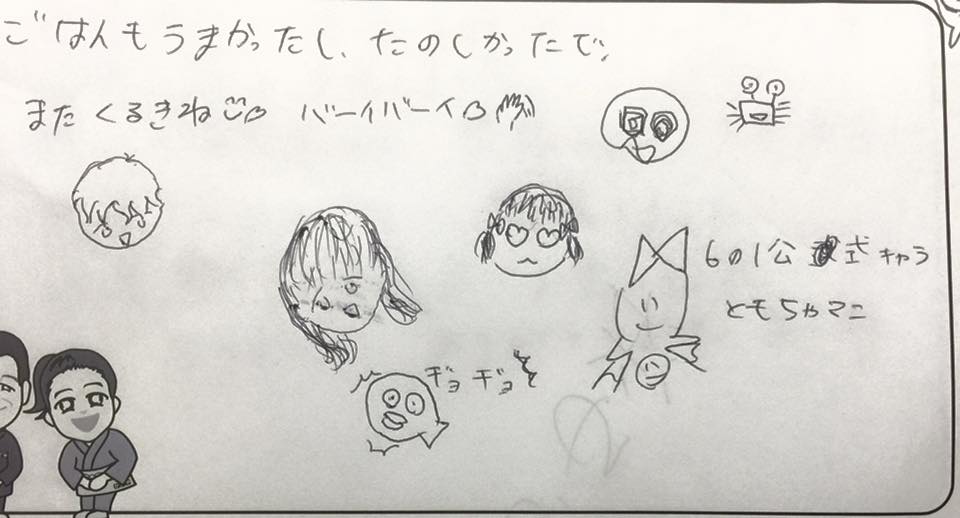 ごはんもうまかったし、たのしかったで、
またくるきね バーイバーイ
6の1公式キャラ
ともちゃマニ
ギョギョ